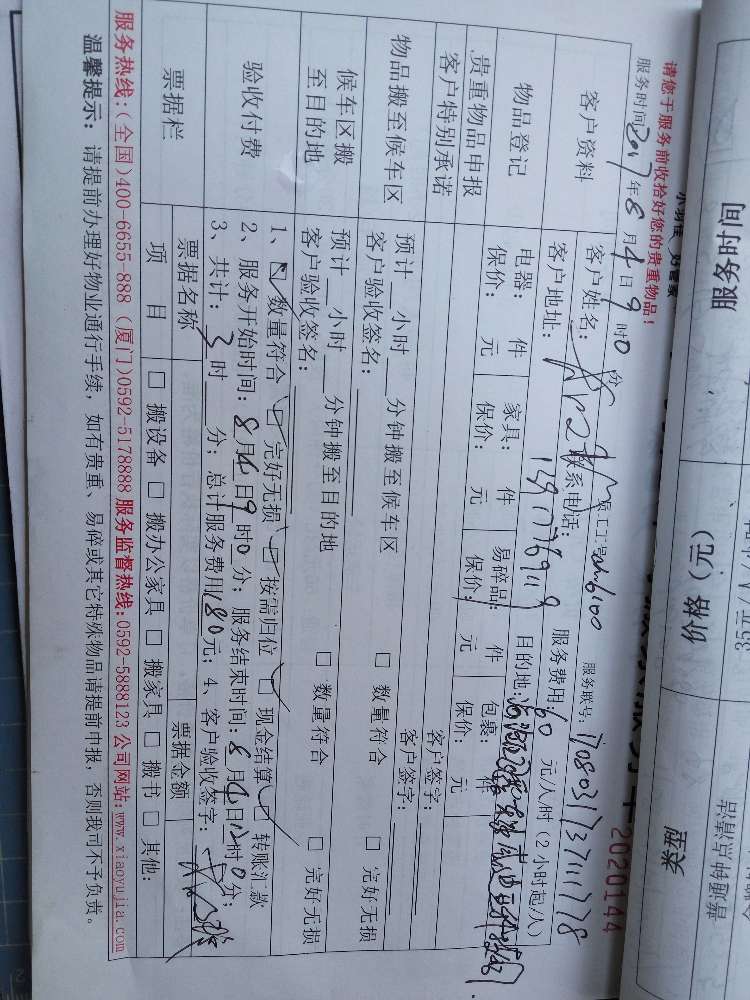 2020144
请您于服务前收拾好您的贵重物品！
服务时间2017年8月4日9时0分 员工工号 服务联号:
客户资料
客户姓名: 联系电话: 服务费用:60元/人/时(2小时起/人)
客户地址: 目的地:
物品登记
电器: 件 家具: 件 易碎品: 件 包裹: 件
保价: 元 保价: 元 保价: 元 保价: 元
贵重物品申报 客户签字:
客户特别承诺 客户签字:
物品搬至候车区
预计 小时 分钟搬至候车区
客户验收签名: □ 数量符合 □ 完好无损
候车区搬至目的地
预计 小时 分钟搬至目的地
客户验收签名: □ 数量符合 □ 完好无损
验收付费
1、□ 数量符合 □ 完好无损 □ 按需归位 □ 现金结算 □ 转账汇款
2、服务开始时间: 8月4日9时0分; 服务结束时间: 8月4日12时0分;
3、共计: 3时 分; 总计服务费用180元; 4、客户验收签字:
票据栏
票据名称 票据金额
项目 □ 搬设备 □ 搬办公家具 □ 搬家具 □ 搬书 □ 其他:
服务热线:(全国)400-6655-888 (厦门)0592-5178888 服务监督热线:0592-5888123 公司网站:www.xiaoyujia.com
温馨提示: 请提前办理好物业通行手续, 如有贵重、易碎或其它特殊物品请提前申报, 否则我司不予负责。
服务时间
价格(元)
类型
普通钟点清洁